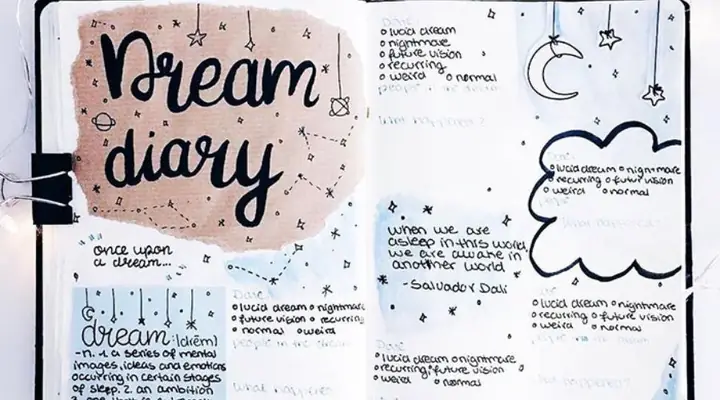 Dream
diary
once upon
a dream...
dream:(drēm)
-n. 1. a series of mental
images, ideas and emotions
occurring in certain stages
of sleep. 2. an ambition
Date:
lucid dream nightmare
future vision recurring
normal weird
people in the dream
what happened
Date:
lucid dream
nightmare
future vision
recurring
weird normal
people in the dream
What happened?
when we are
asleep in this world,
we are awake in
another world
-Salvador Dalí
Date:
lucid dream nightmare
recurring future vision
weird normal
Date:
lucid dream nightmare
recurring future vision
weird normal
What happened?
lucid dream nightmare
recurring future vision
weird normal
people in the dream
happened?